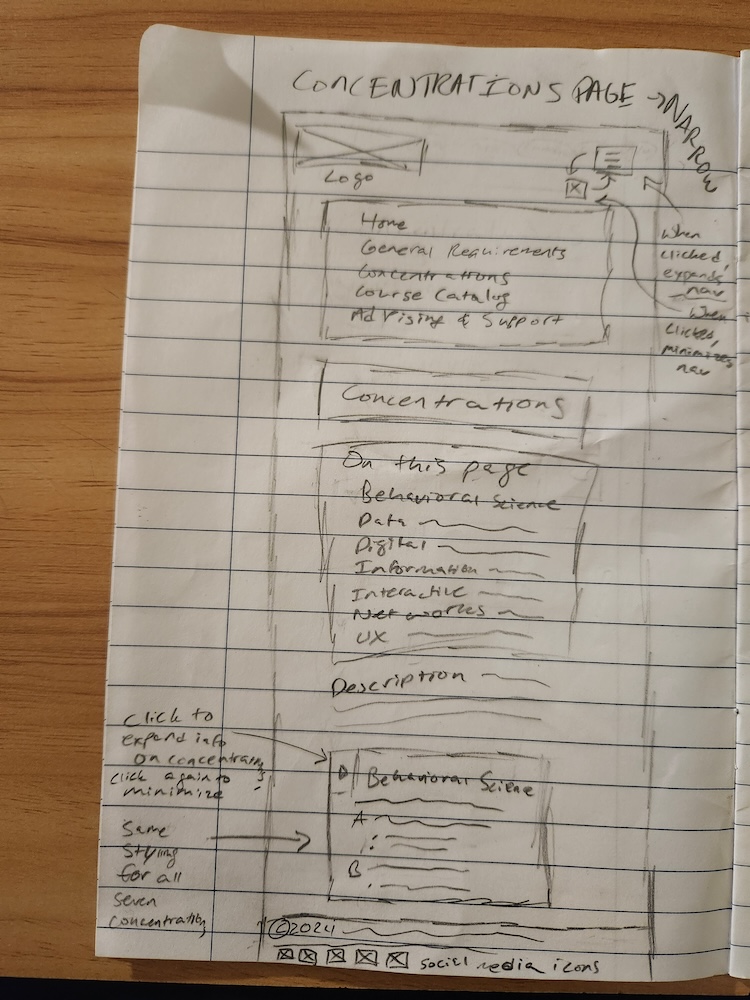 CONCENTRATIONS PAGE → NARROW
Logo
When
clicked,
expands
nav
When
clicked,
minimizes
nav
Home
General Requirements
Concentrations
Course Catalog
Advising & Support
Concentrations
On this page
Behavioral Science
Data
Digital
Information
Interactive
Networks
UX
Description
Click to
expand info
on concentration,
click again to
minimize
Behavioral Science
A
B
Same
Styling
for all
seven
concentrations
©2024
social media icons